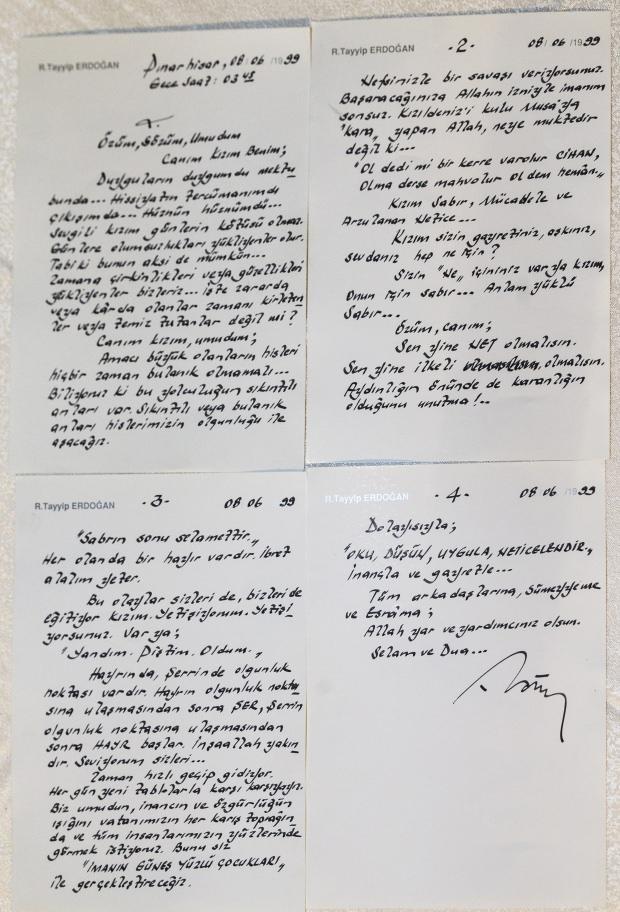 R.Tayyip ERDOĞAN
Pınarhisar, 08/06/1999
Gece Saat: 03 45
Özüm, Sözüm, Umudum
Canım Kızım Benim;
Duyguların duygumdu mektu
bunda... Hissiyatın tercümanımdı
çıkışımda... Hüznün hüznümdü...
Sevgili kızım günlerin kötüsü olmaz.
Günlere olumsuzlukları yükleyenler olur.
Tabiki bunun aksi de mümkün...
Zamana çirkinlikleri veya güzellikleri
yükleyenler bizleriz... İşte zararda
veya kârda olanlar zamanı kirleten
ler veya temiz tutanlar değil mi?
Canım kızım, umudum;
Amacı büyük olanların hisleri
hiçbir zaman bulanık olmamalı...
Biliyoruz ki bu yolculuğun sıkıntılı
anları var. Sıkıntılı veya bulanık
anları hislerimizin olgunluğu ile
aşacağız.
R.Tayyip ERDOĞAN -2- 08/06/1999
Nefsinizle bir savaşı veriyorsunuz.
Başaracağınıza Allahın izniyle imanım
sonsuz. Kızıldeniz'i kulu Musa'ya
"kara" yapan Allah, neye muktedir
değil ki...
"Ol dedi mi bir kerre varolur CİHAN,
Olma derse mahvolur ol dem hemân."
Kızım Sabır, Mücadele ve
Arzulanan Netice...
Kızım sizin gayretiniz, aşkınız,
sevdanız hep ne için?
Sizin "Ne" içininiz varya kızım,
Onun için sabır... Anlam yüklü
Sabır...
Özüm, canım;
Sen yine NET olmalısın.
Sen yine ilkeli olmalısın.
Aydınlığın Önünde de karanlığın
olduğunu unutma!..
R.Tayyip ERDOĞAN -3- 08 06 99
"Sabrın sonu selamettir."
Her olanda bir hayır vardır. İbret
alalım yeter.
Bu olaylar sizleri de, bizleri de
eğitiyor kızım. Yetişiyorum. Yetişi
yorsunuz. Var ya;
"Yandım. Piştim. Oldum."
Hayrında, Şerrinde olgunluk
noktası vardır. Hayrın olgunluk nokta
sına ulaşmasından sonra ŞER, Şerrin
olgunluk noktasına ulaşmasından
sonra HAYR başlar. İnşaallah yakın
dır. Seviyorum sizleri...
Zaman hızlı geçip gidiyor.
Her gün yeni tablolarla karşı karşıyayız.
Biz umudun, inancın ve özgürlüğün
ışığını vatanımızın her karış toprağın
da ve tüm insanlarımızın yüzlerinde
görmek istiyoruz. Bunu siz
"İMANIN GÜNEŞ YÜZLÜ ÇOCUKLARI"
ile gerçekleştireceğiz.
R.Tayyip ERDOĞAN -4- 08 06 /1999
Dolayısıyla;
"OKU, DÜŞÜN, UYGULA, NETİCELENDİR."
İnançla ve gayretle...
Tüm arkadaşlarına, Sümeyyeme
ve Esrâma;
Allah yar ve yardımcınız olsun.
Selam ve Dua...